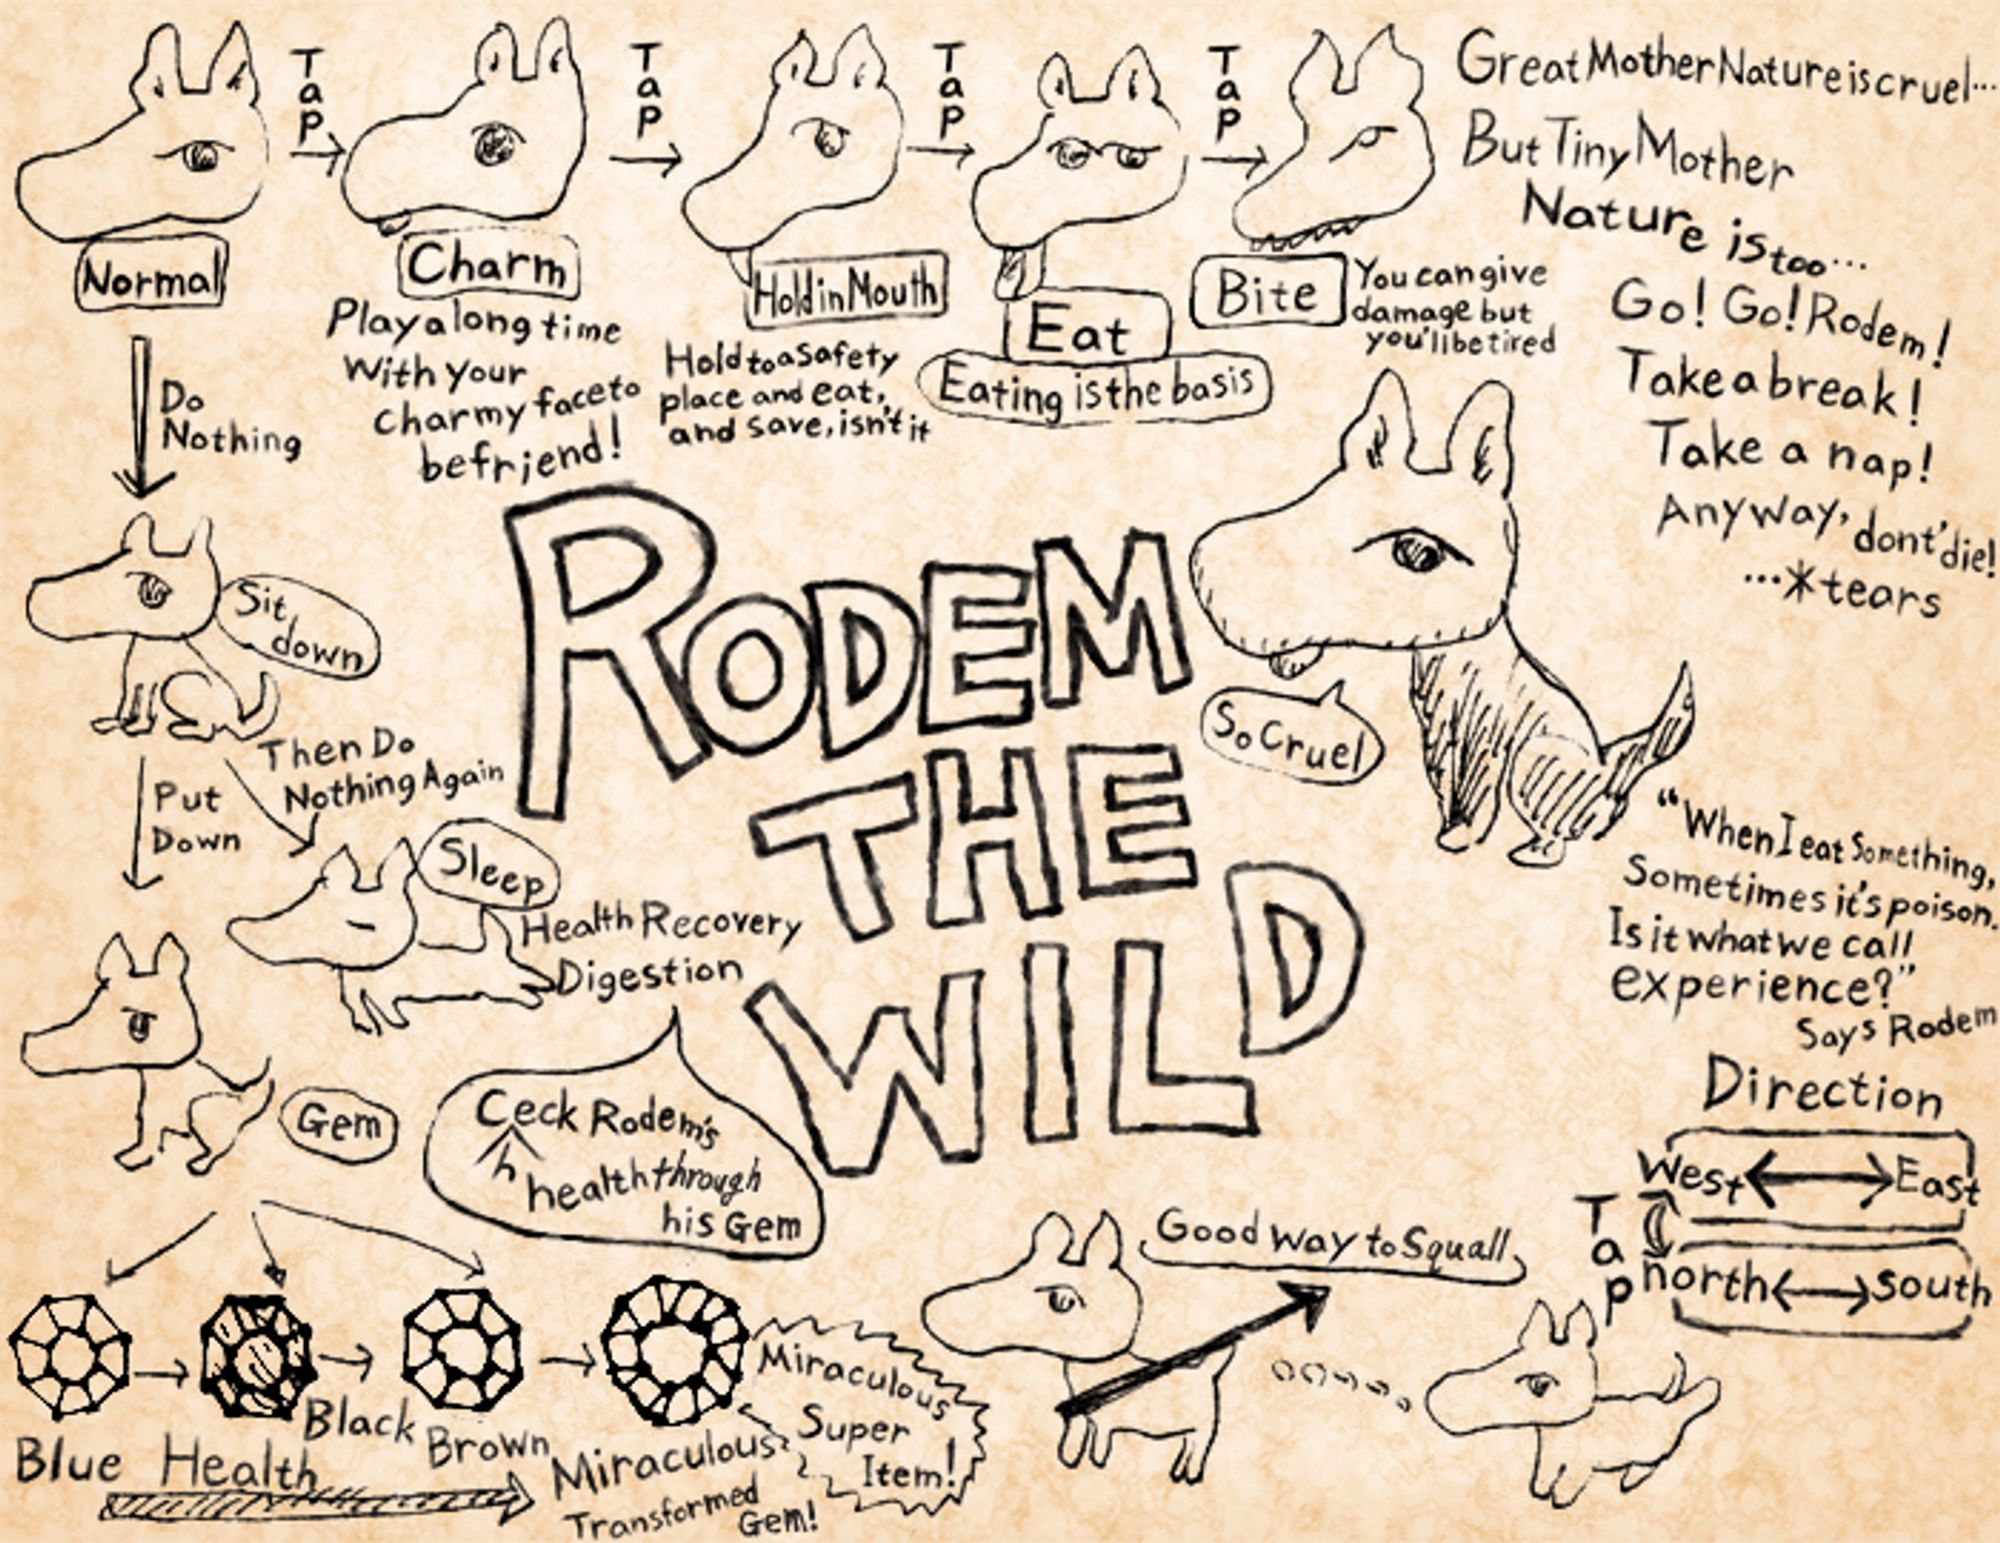 Tap
Tap
Tap
Tap
Normal
Charm
Play a long time
With your
charmy face to
befriend!
Hold in Mouth
Hold to a Safety
place and eat,
and save, isn't it
Eat
Eating is the basis
Bite
You can give
damage but
you'll be tired
Great Mother Nature is cruel...
But Tiny Mother
Nature is too...
Go! Go! Rodem!
Take a break!
Take a nap!
Anyway, dont' die!
...*tears
Do
Nothing
Sit
down
Then Do
Nothing Again
Put
Down
Sleep
Health Recovery
Digestion
Gem
Ceck Rodem's
h
health through
his Gem
RODEM
THE
WILD
So Cruel
"When I eat Something,
Sometimes it's poison.
Is it what we call
experience?"
Says Rodem
Direction
West
East
Tap
north
south
Good way to Squall
Blue
Health
Black
Brown
Miraculous
Transformed
Gem!
Miraculous
Super
Item!